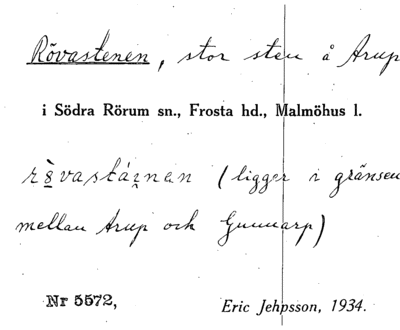 Rövastenen, stor sten å Arup
i Södra Rörum sn., Frosta hd., Malmöhus l.
(ligger i gränsen
mellan Arup och Gunnarp)
Nr 5572,
Eric Jehpsson, 1934.